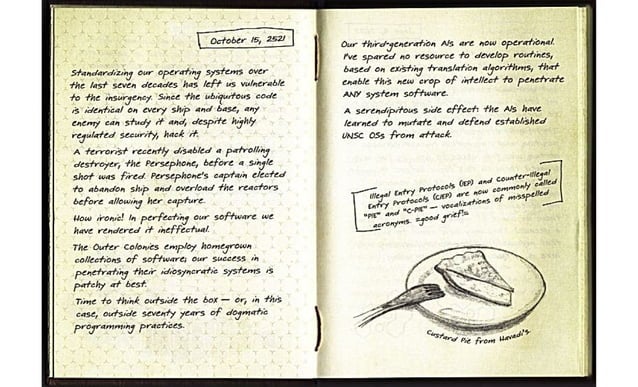 October 15, 2521
Standardizing our operating systems over
the last seven decades has left us vulnerable
to the insurgency. Since the ubiquitous code
is identical on every ship and base, any
enemy can study it and, despite highly
regulated security, hack it.
A terrorist recently disabled a patrolling
destroyer, the Persephone, before a single
shot was fired. Persephone's captain elected
to abandon ship and overload the reactors
before allowing her capture.
How ironic! In perfecting our software we
have rendered it ineffectual.
The Outer Colonies employ homegrown
collections of software; our success in
penetrating their idiosyncratic systems is
patchy at best.
Time to think outside the box — or, in this
case, outside seventy years of dogmatic
programming practices.
Our third-generation AIs are now operational.
I've spared no resource to develop routines,
based on existing translation algorithms, that
enable this new crop of intellect to penetrate
ANY system software.
A serendipitous side effect: the AIs have
learned to mutate and defend established
UNSC OSs from attack.
Illegal Entry Protocols (IEP) and Counter-Illegal
Entry Protocols (CIEP) are now commonly called
"PIE" and "C-PIE" — vocalizations of misspelled
acronyms. =good grief!=
Custard Pie from Havadi's